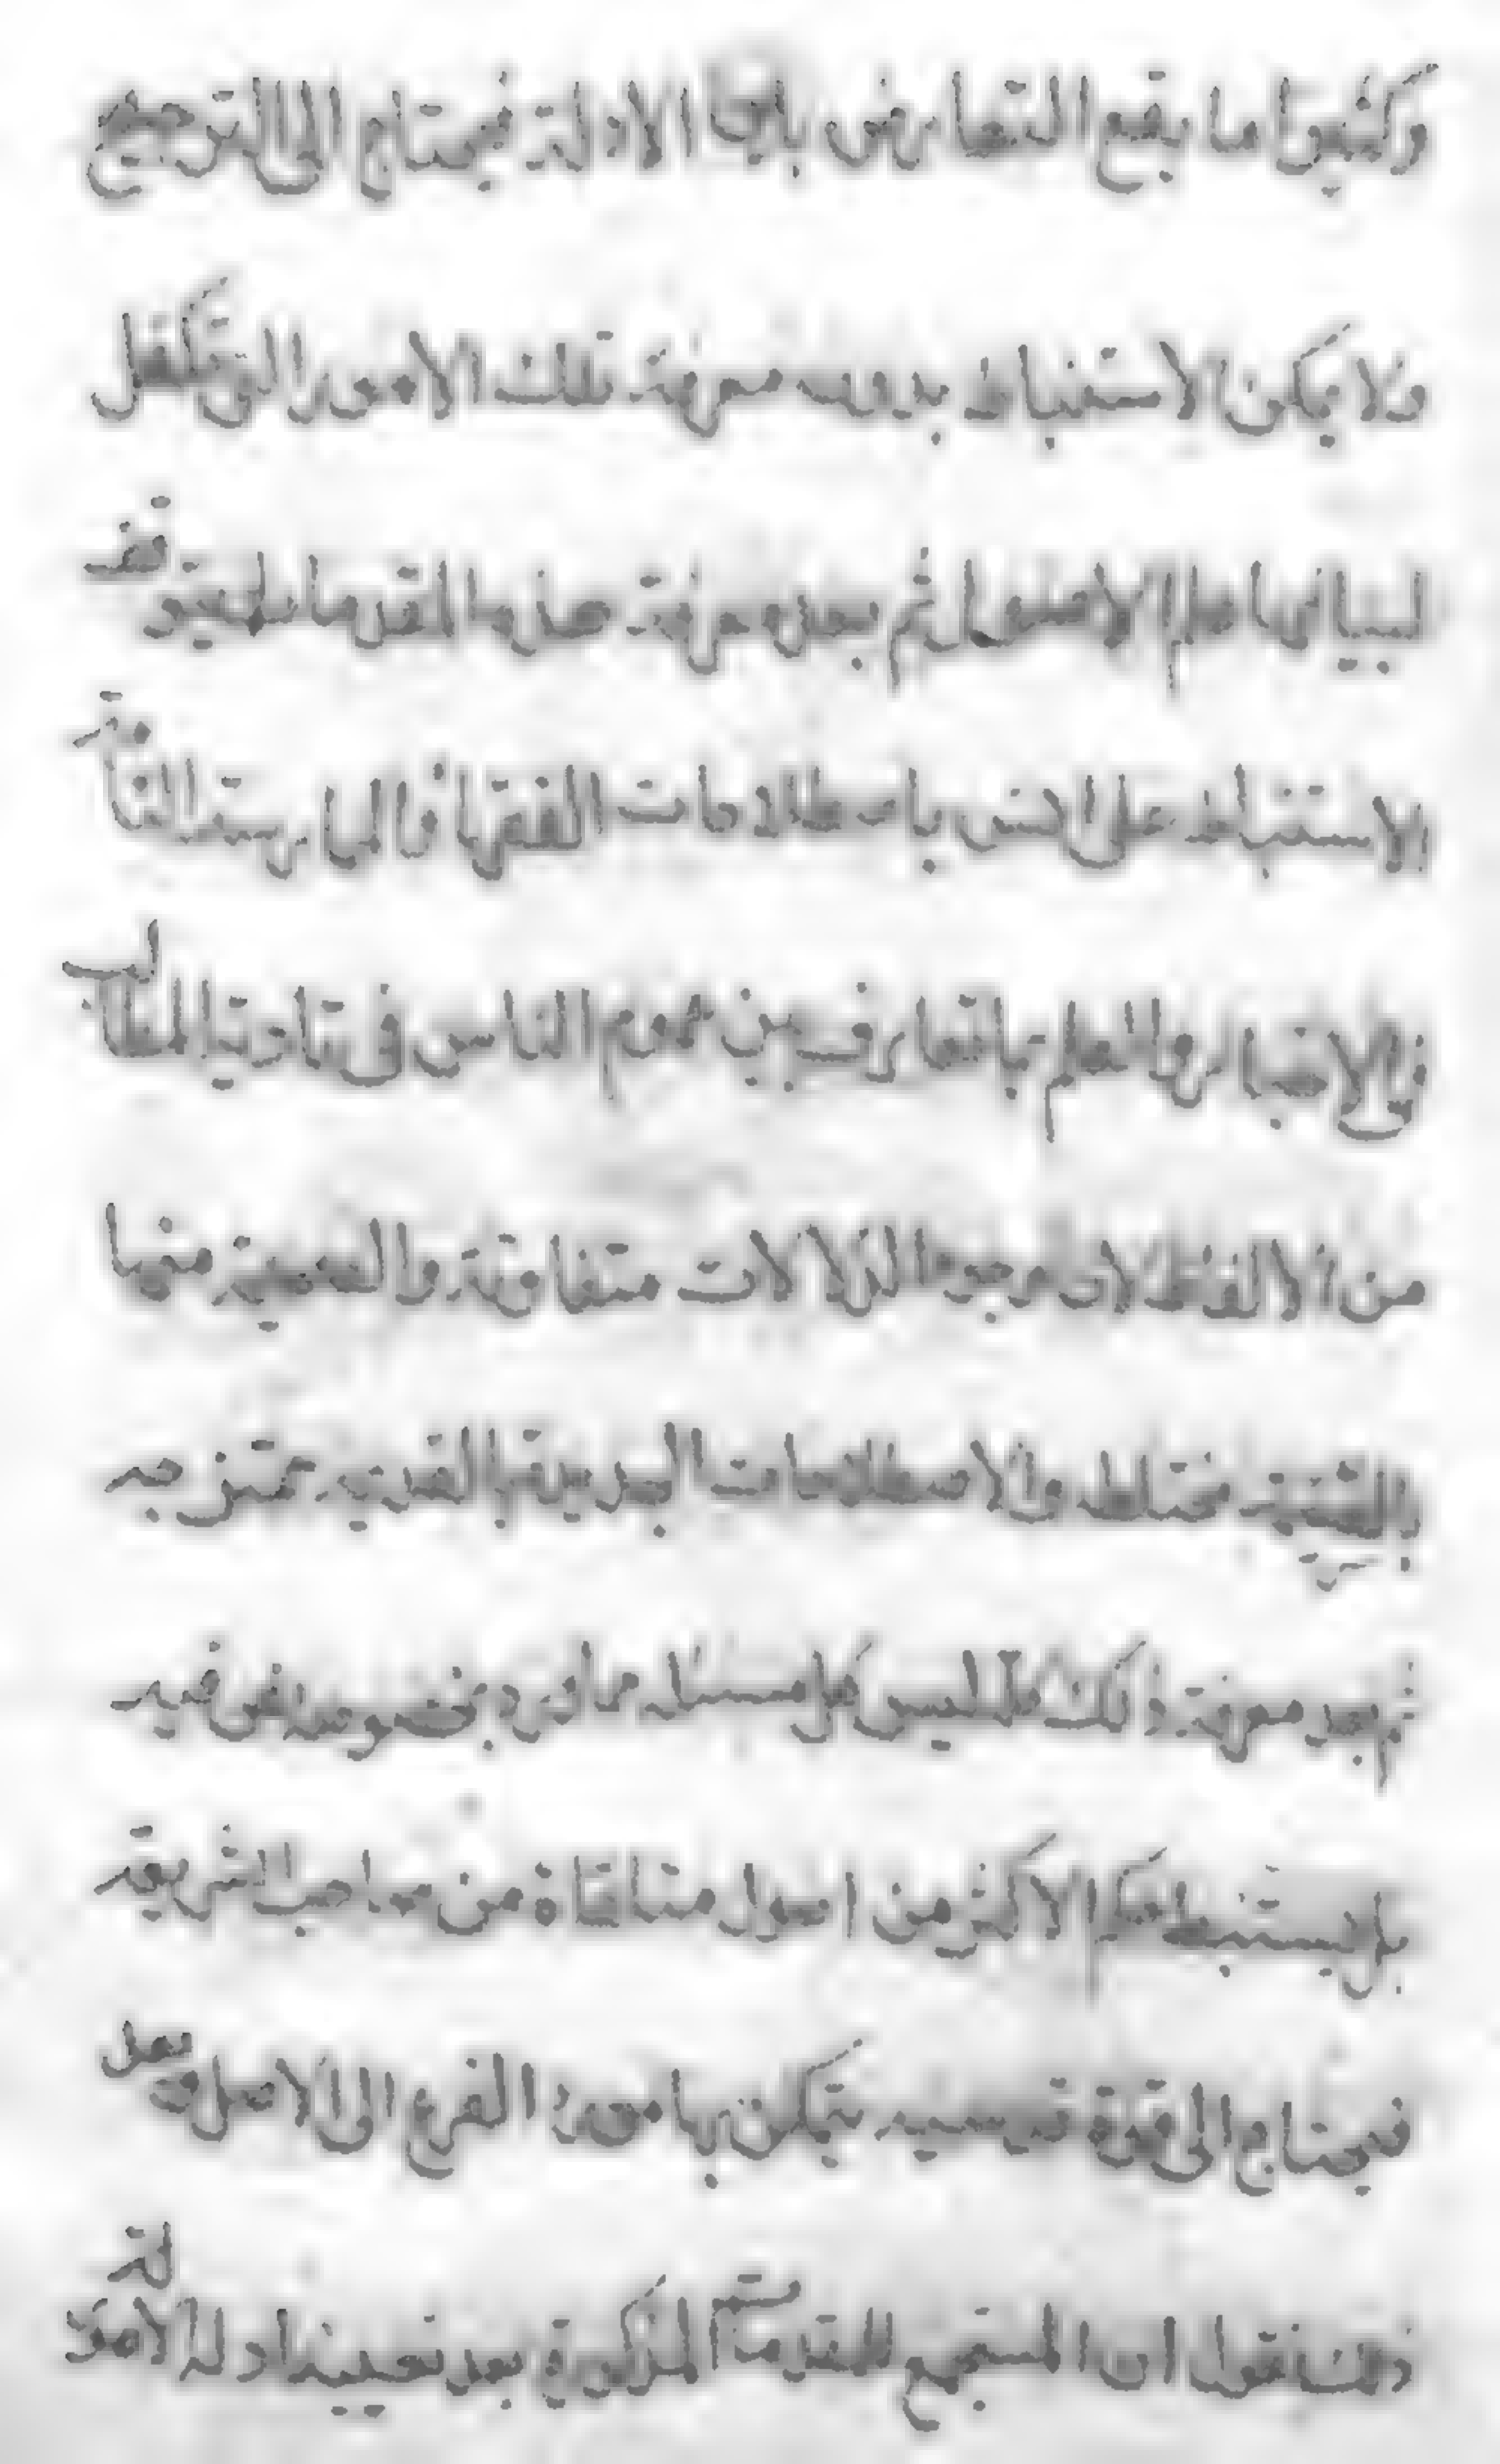 وكثيرا ما يقع التعارض بين الادلة فيحتاج الى الترجيح
ولا يمكن الاستنباط بدون معرفة تلك الامور التي تكفل
لبيانها علم الاصول ثم بعد معرفة هذه المقدمات يتوقف
الاستنباط على الانس باصطلاحات الفقهاء والممارسة التامة
في الاخبار والعلم بالتعارف بين عموم الناس في تادية المطالب
من الالفاظ لان وجوه الدلالات متفاوتة والصحيحة منها
بالسقيمة مختلطة والاصطلاحات الجديدة بالقديمة ممتزجة
ثم بعد معرفة ذلك كله ليس كل مسئلة ما ورد بخصوصه نص فيه
بل يستنبط حكم الاكثر من اصول متلقاة من صاحب الشريعة
فيحتاج الى قوة قدسيه يتمكن بها من رد الفرع الى الاصل وبعد
ذلك نقول ان المستجمع للمقدمات المذكورة بعد تعيينه ادلة